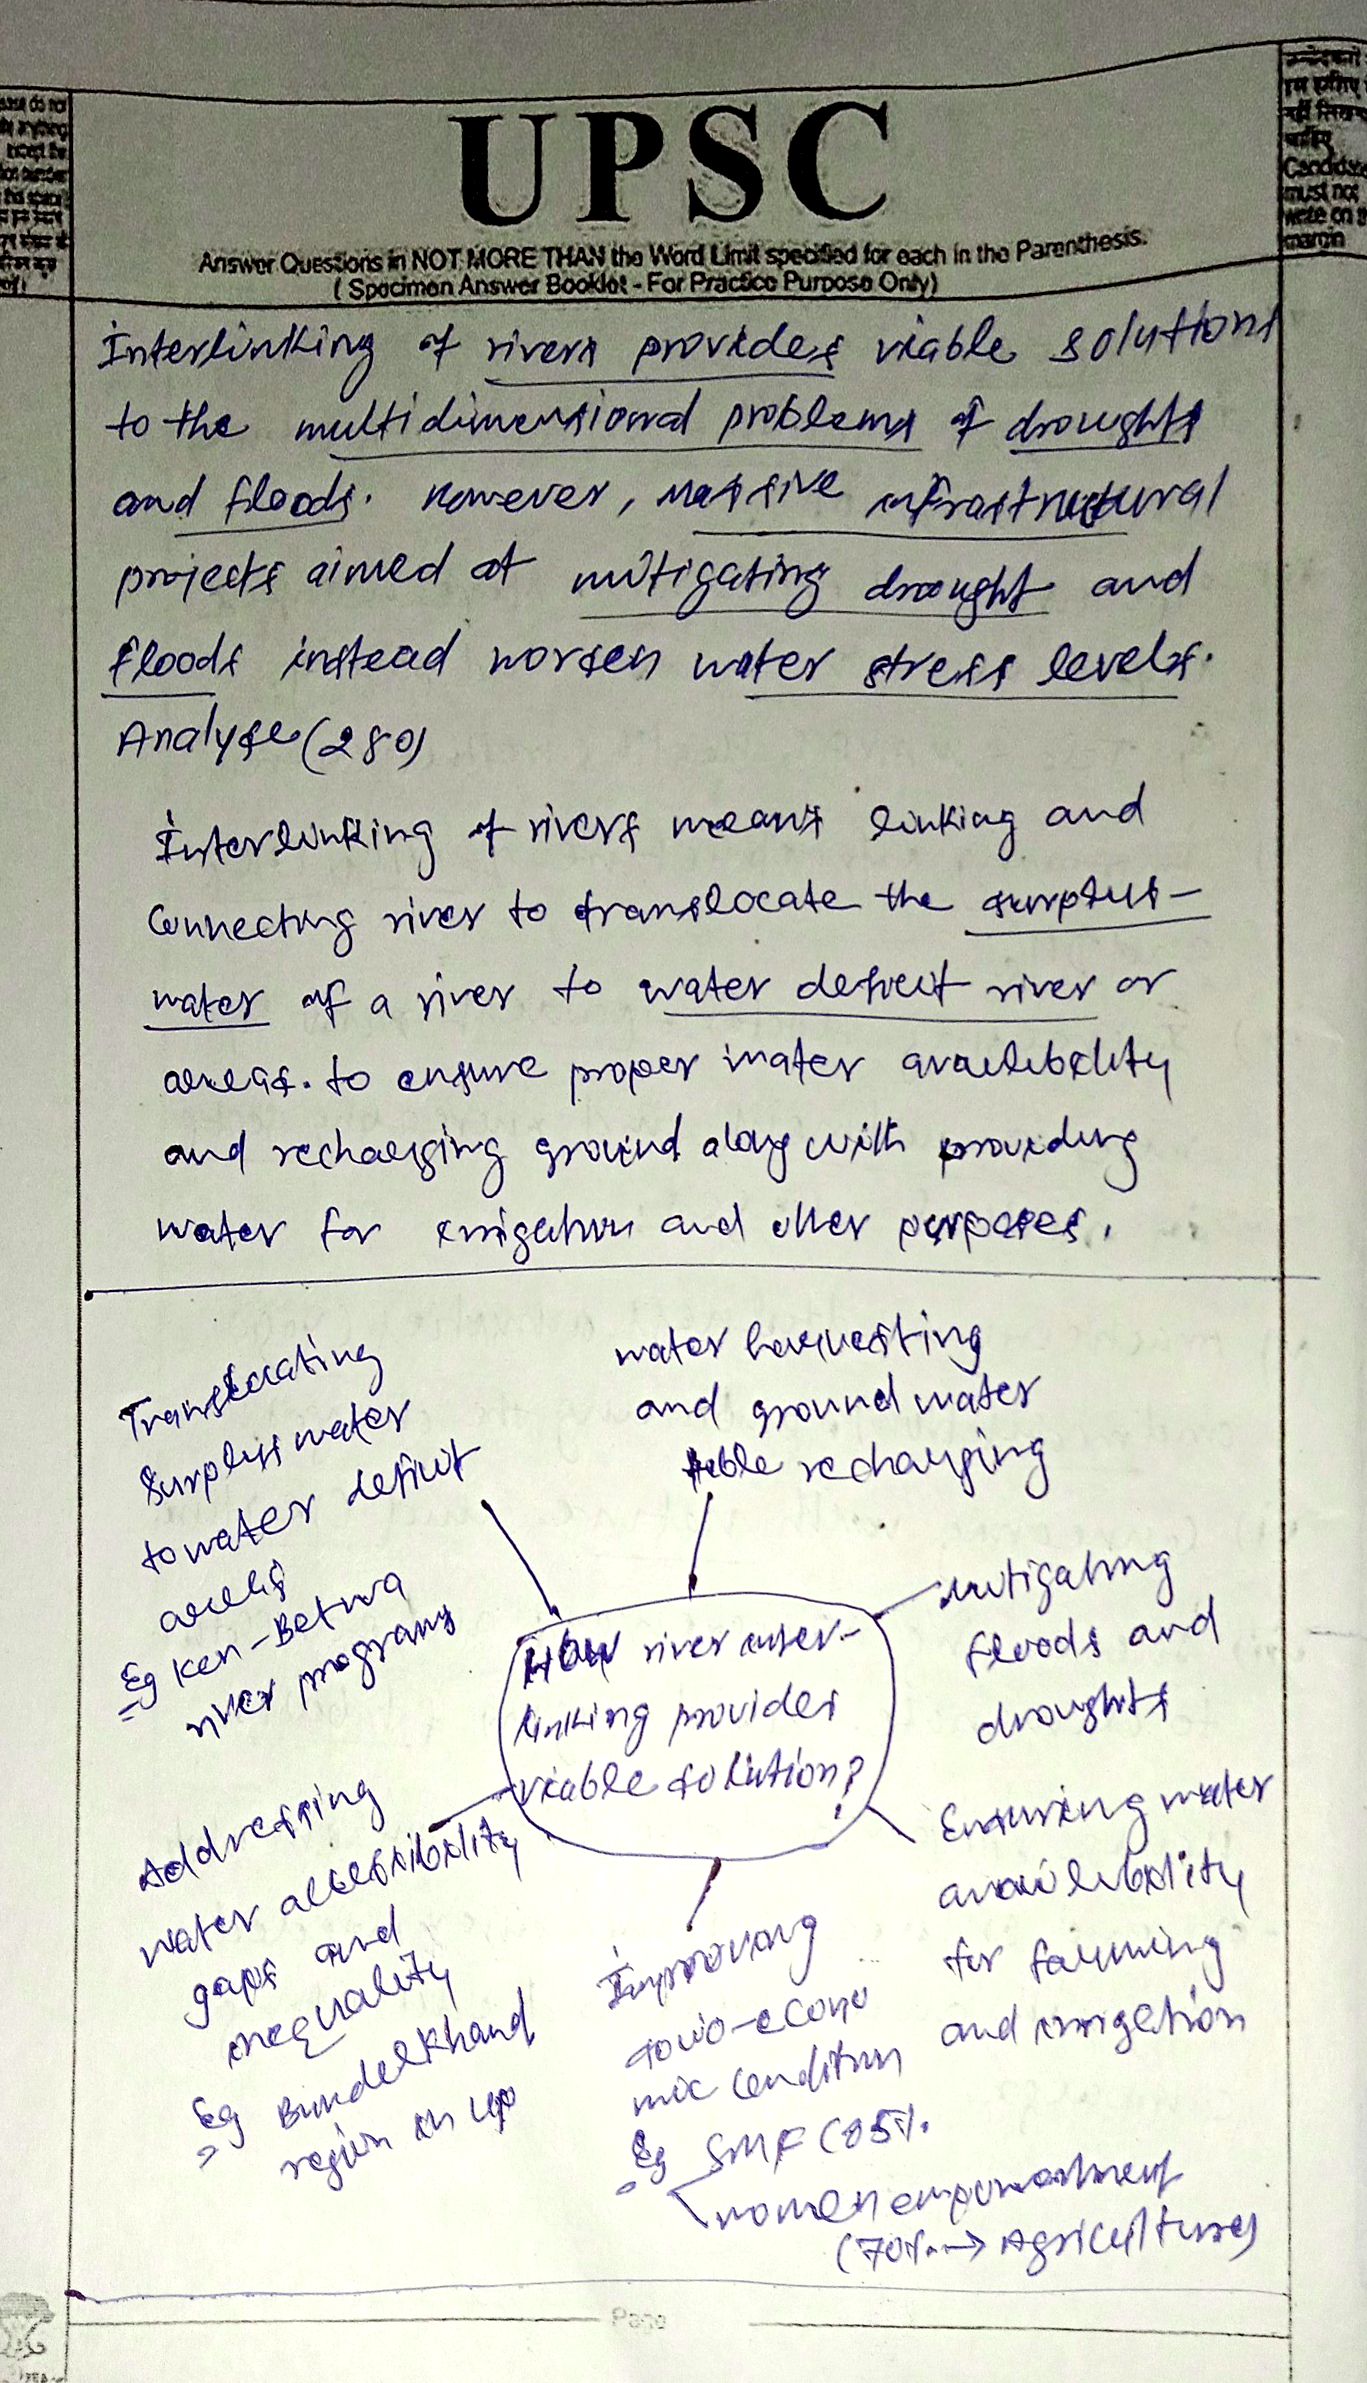 UPSC
Answer Questions in NOT MORE THAN the Word Limit specified for each in the Parenthesis.
( Specimen Answer Booklet - For Practice Purpose Only)
Candidate
must not
write on
margin
Interlinking of rivers provides viable solutions
to the multidimensional problems of droughts
and floods. However, massive infrastructural
projects aimed at mitigating drought and
floods instead worsen water stress levels.
Analyse (250)
Interlinking of rivers means linking and
Connecting river to translocate the surplus-
water of a river to water deficit river or
areas. to ensure proper water availibility
and recharging ground along with providing
water for irrigation and other purposes.
Translocating
Surplus water
to water deficit
areas
Eg Ken-Betwa
river programs
water harvesting
and ground water
table recharging
mitigating
floods and
droughts
How river inter-
linking provides
viable solution?
Ensuring water
availibility
for farming
and irrigation
Improving
socio-econo
mic condition
Eg SMF (85%.
women empowerment
(70%. → Agriculture)
Addressing
water accessibility
gaps and
inequality
Eg Bundelkhand
region in UP
Page